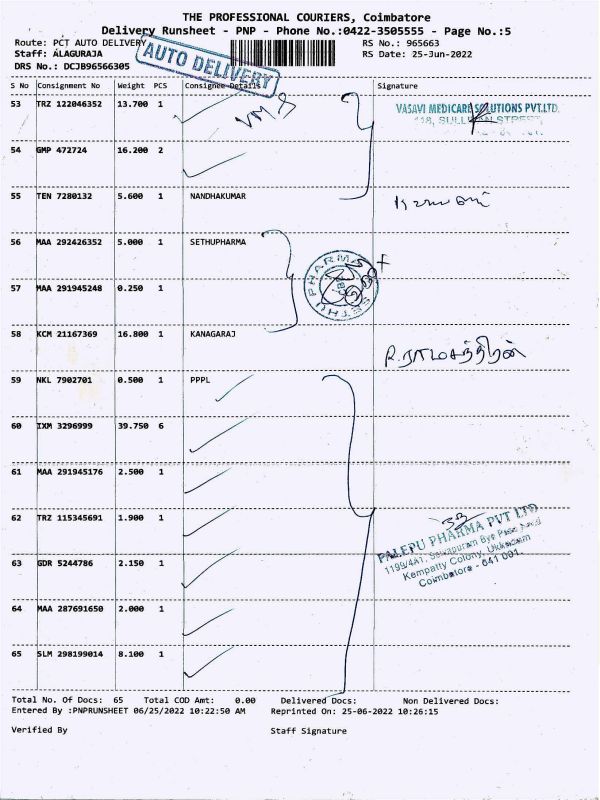 THE PROFESSIONAL COURIERS, Coimbatore
Delivery Runsheet - PNP - Phone No.:0422-3505555 - Page No.:5
Route: PCT AUTO DELIVERY RS No.: 965663
Staff: ALAGURAJA RS Date: 25-Jun-2022
DRS No.: DCJB96566305
AUTO DELIVERY
S No Consignment No Weight PCS Consignee Details Signature
53 TRZ 122046352 13.700 1
VMS
VASAVI MEDICARE SOLUTIONS PVT.LTD.
54 GMP 472724 16.200 2
55 TEN 7280132 5.600 1 NANDHAKUMAR
56 MAA 292426352 5.000 1 SETHUPHARMA
SETHU PHARMA
57 MAA 291945248 0.250 1
58 KCM 21167369 16.800 1 KANAGARAJ
R. ராமசந்திரன்
59 NKL 7902701 0.500 1 PPPL
60 IXM 3296999 39.750 6
61 MAA 291945176 2.500 1
62 TRZ 115345691 1.900 1
PALEPU PHARMA PVT LTD
1199/4A1, Selvapuram Bye Pass Road
Kempatty Colony, Ukkadam
Coimbatore - 641 001.
63 GDR 5244786 2.150 1
64 MAA 287691650 2.000 1
65 SLM 298199014 8.100 1
Total No. Of Docs: 65 Total COD Amt: 0.00 Delivered Docs: Non Delivered Docs:
Entered By :PNPRUNSHEET 06/25/2022 10:22:50 AM Reprinted On: 25-06-2022 10:26:15
Verified By Staff Signature